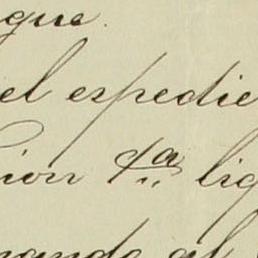 gue.
el espedie
ion 1ª lig
nando al